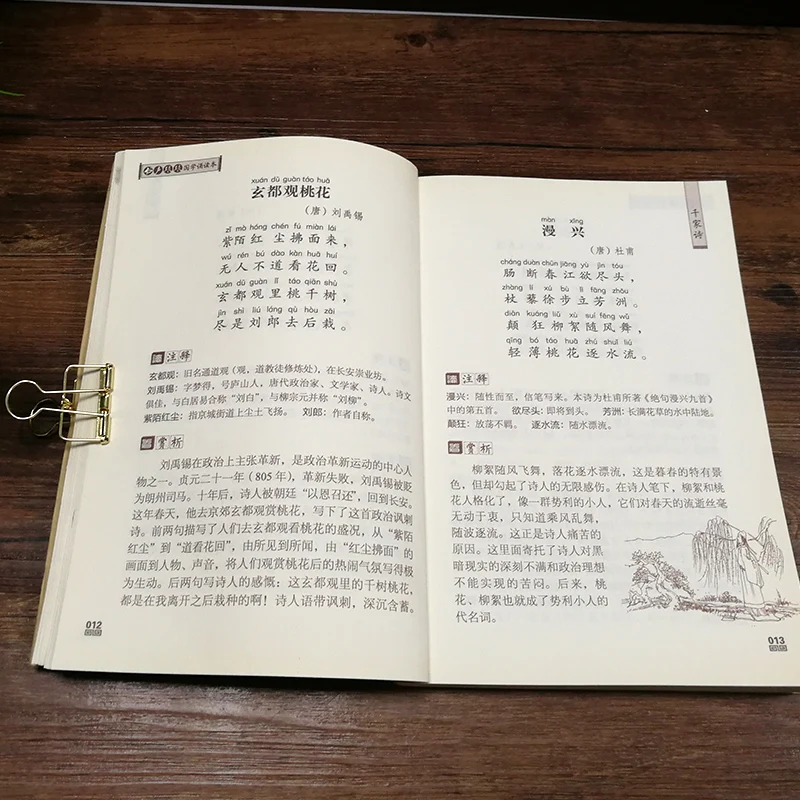 国学诵读本
xuán dū guàn táo huā
玄都观桃花
（唐）刘禹锡
zǐ mò hóng chén fú miàn lái
紫陌红尘拂面来，
wú rén bú dào kàn huā huí
无人不道看花回。
xuán dū guàn lǐ táo qiān shù
玄都观里桃千树，
jìn shì liú láng qù hòu zāi
尽是刘郎去后栽。
注释
玄都观：旧名通道观（观，道教徒修炼处），在长安崇业坊。
刘禹锡：字梦得，号庐山人，唐代政治家、文学家、诗人。诗文
俱佳，与白居易合称“刘白”，与柳宗元并称“刘柳”。
紫陌红尘：指京城街道上尘土飞扬。 刘郎：作者自称。
赏析
刘禹锡在政治上主张革新，是政治革新运动的中心人
物之一。贞元二十一年（805年），革新失败，刘禹锡被贬
为朗州司马。十年后，诗人被朝廷“以恩召还”，回到长安。
这年春天，他去京郊玄都观赏桃花，写下了这首政治讽刺
诗。前两句描写了人们去玄都观看桃花的盛况，从“紫陌
红尘”到“道看花回”，由所见到所闻，由“红尘拂面”的
画面到人物、声音，将人们观赏桃花后的热闹气氛写得极
为生动。后两句写诗人的感慨：这玄都观里的千树桃花，
都是在我离开之后栽种的啊！诗人语带讽刺，深沉含蓄。
012
千家诗
màn xìng
漫兴
（唐）杜甫
cháng duàn chūn jiāng yù jìn tóu
肠断春江欲尽头，
zhàng lí xú bù lì fāng zhōu
杖藜徐步立芳洲。
diān kuáng liǔ xù suí fēng wǔ
颠狂柳絮随风舞，
qīng bó táo huā zhú shuǐ liú
轻薄桃花逐水流。
注释
漫兴：随性而至，信笔写来。本诗为杜甫所著《绝句漫兴九首》
中的第五首。 欲尽头：即将到头。 芳洲：长满花草的水中陆地。
颠狂：放荡不羁。 逐水流：随水漂流。
赏析
柳絮随风飞舞，落花逐水漂流，这是暮春的特有景
色，但却勾起了诗人的无限感伤。在诗人笔下，柳絮和桃
花人格化了，像一群势利的小人，它们对春天的流逝丝毫
无动于衷，只知道乘风乱舞，
随波逐流。这正是诗人痛苦的
原因。这里面寄托了诗人对黑
暗现实的深刻不满和政治理想
不能实现的苦闷。后来，桃
花、柳絮也就成了势利小人的
代名词。
013